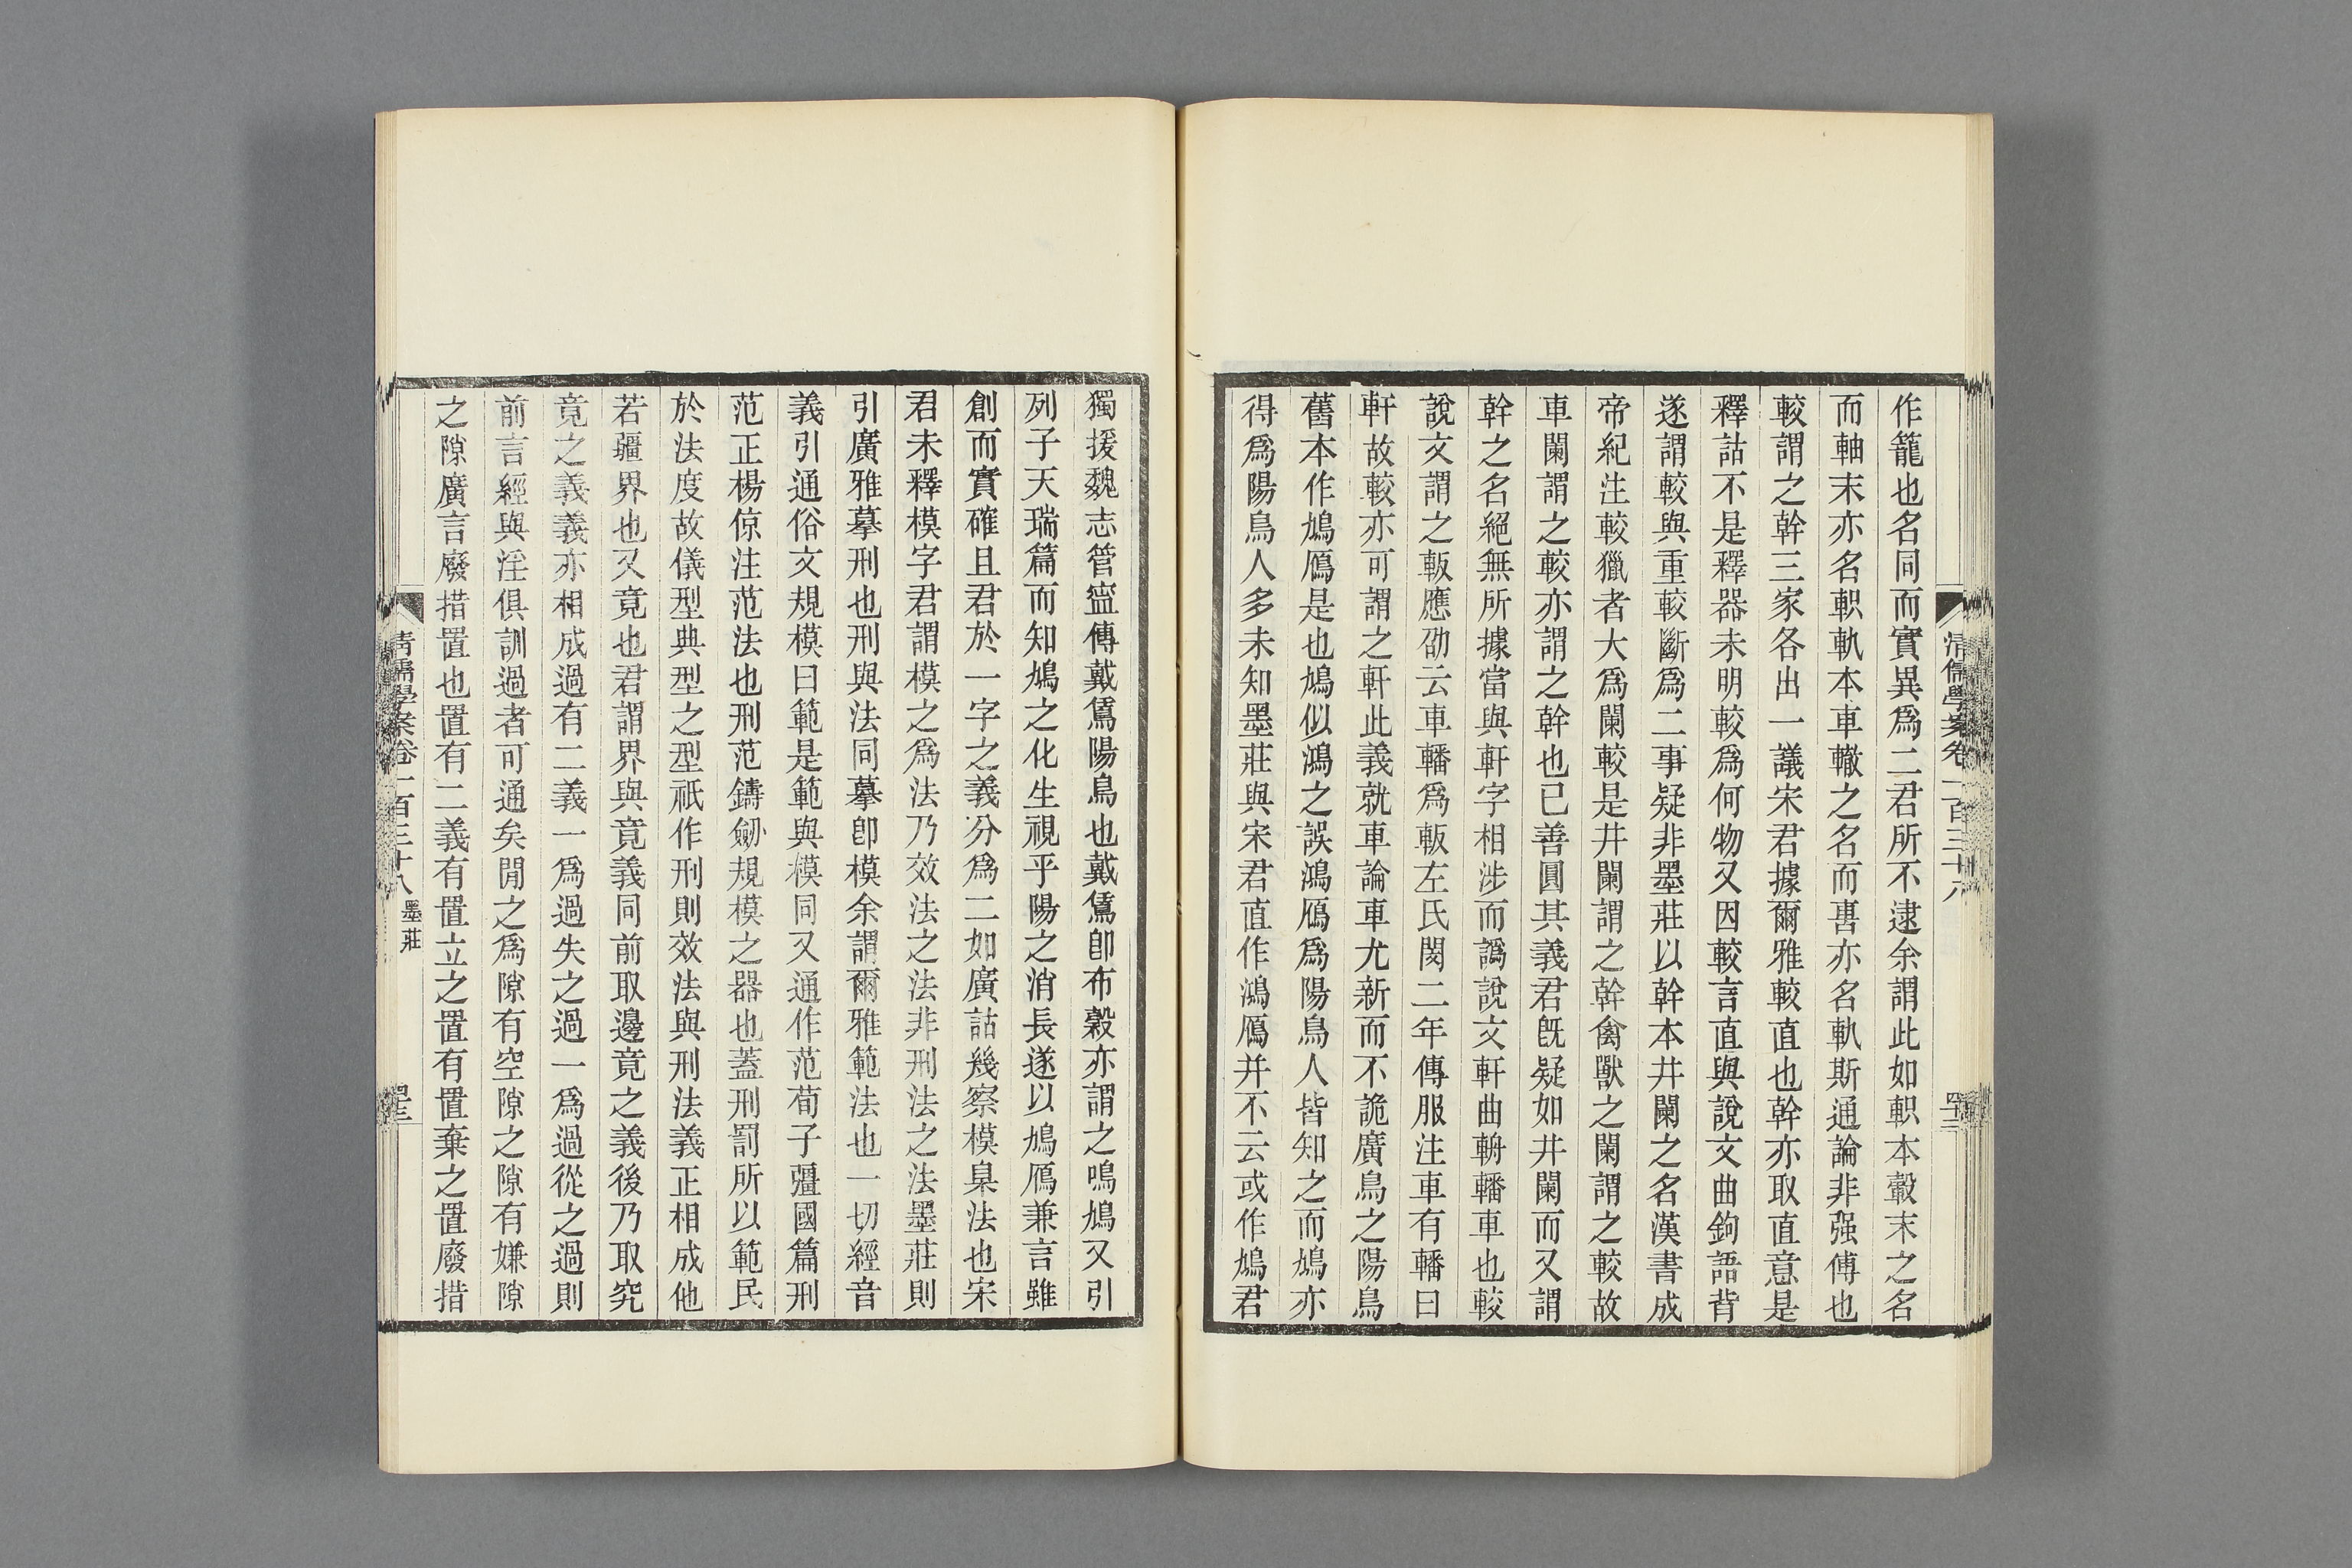 清儒學案卷一百三十八
作籠也名同而實異爲二君所不逮余謂此如軹本轂末之名
而軸末亦名軹軌本車轍之名而軎亦名軌斯通論非强傅也
較謂之幹三家各出一議宋君據爾雅較直也幹亦取直意是
釋詁不是釋器未明較爲何物又因較言直與說文曲鉤語背
遂謂較與重較斷爲二事疑非墨莊以幹本井闌之名漢書成
帝紀注較獵者大爲闌較是井闌謂之幹禽獸之闌謂之較故
車闌謂之較亦謂之幹也已善圓其義君旣疑如井闌而又謂
幹之名絕無所據當與軒字相涉而譌說文軒曲輈轓車也較
說文謂之軓應劭云車轓爲軓左氏閔二年傳服注車有轓曰
軒故較亦可謂之軒此義就車論車尤新而不詭廣鳥之陽鳥
舊本作鳩鴈是也鳩似鴻之誤鴻鴈爲陽鳥人皆知之而鳩亦
得爲陽鳥人多未知墨莊與宋君直作鴻鴈并不云或作鳩君
獨援魏志管寍傳戴鵀陽鳥也戴鵀卽布榖亦謂之鳴鳩又引
列子天瑞篇而知鳩之化生視乎陽之消長遂以鳩鴈兼言雖
創而實確且君於一字之義分爲二如廣詁幾察模臬法也宋
君未釋模字君謂模之爲法乃效法之法非刑法之法墨莊則
引廣雅摹刑也刑與法同摹卽模余謂爾雅範法也一切經音
義引通俗文規模曰範是範與模同又通作范荀子彊國篇刑
范正楊倞注范法也刑范鑄劒規模之器也蓋刑罰所以範民
於法度故儀型典型之型祇作刑則效法與刑法義正相成他
若疆界也又竟也君謂界與竟義同前取邊竟之義後乃取究
竟之義義亦相成過有二義一爲過失之過一爲過從之過則
前言經與淫俱訓過者可通矣閒之爲隙有空隙之隙有嫌隙
之隙廣言廢措置也置有二義有置立之置有置棄之置廢措
清儒學案卷一百三十八 墨莊